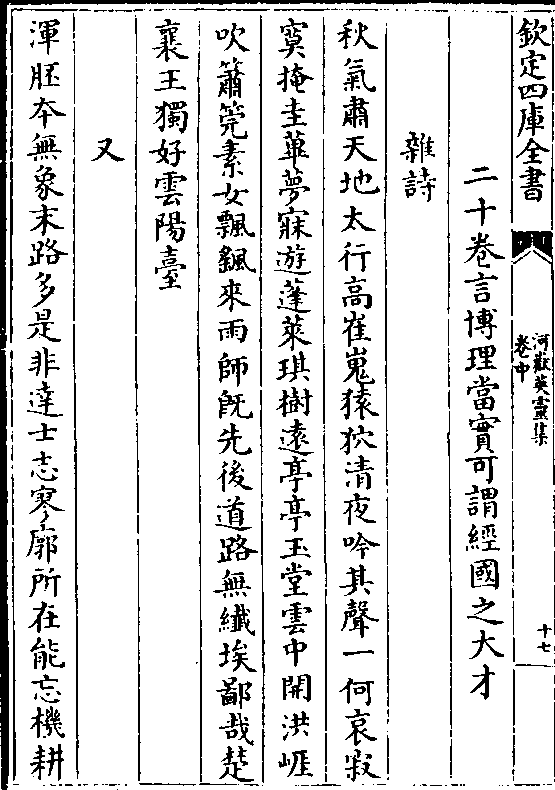 欽定四庫全書
河嶽英靈集
卷中
十七
二十卷言博理當實可謂經國之大才
雜詩
秋氣肅天地太行高崔嵬猿狖清夜吟其聲一何哀寂
寞掩圭蓽夢寐遊蓬萊琪樹遠亭亭玉堂雲中開洪崖
吹簫筦素女飄颻來雨師旣先後道路無纖埃鄙哉楚
襄王獨好雲陽臺
又
渾胚本無象末路多是非達士志寥廓所在能忘機耕